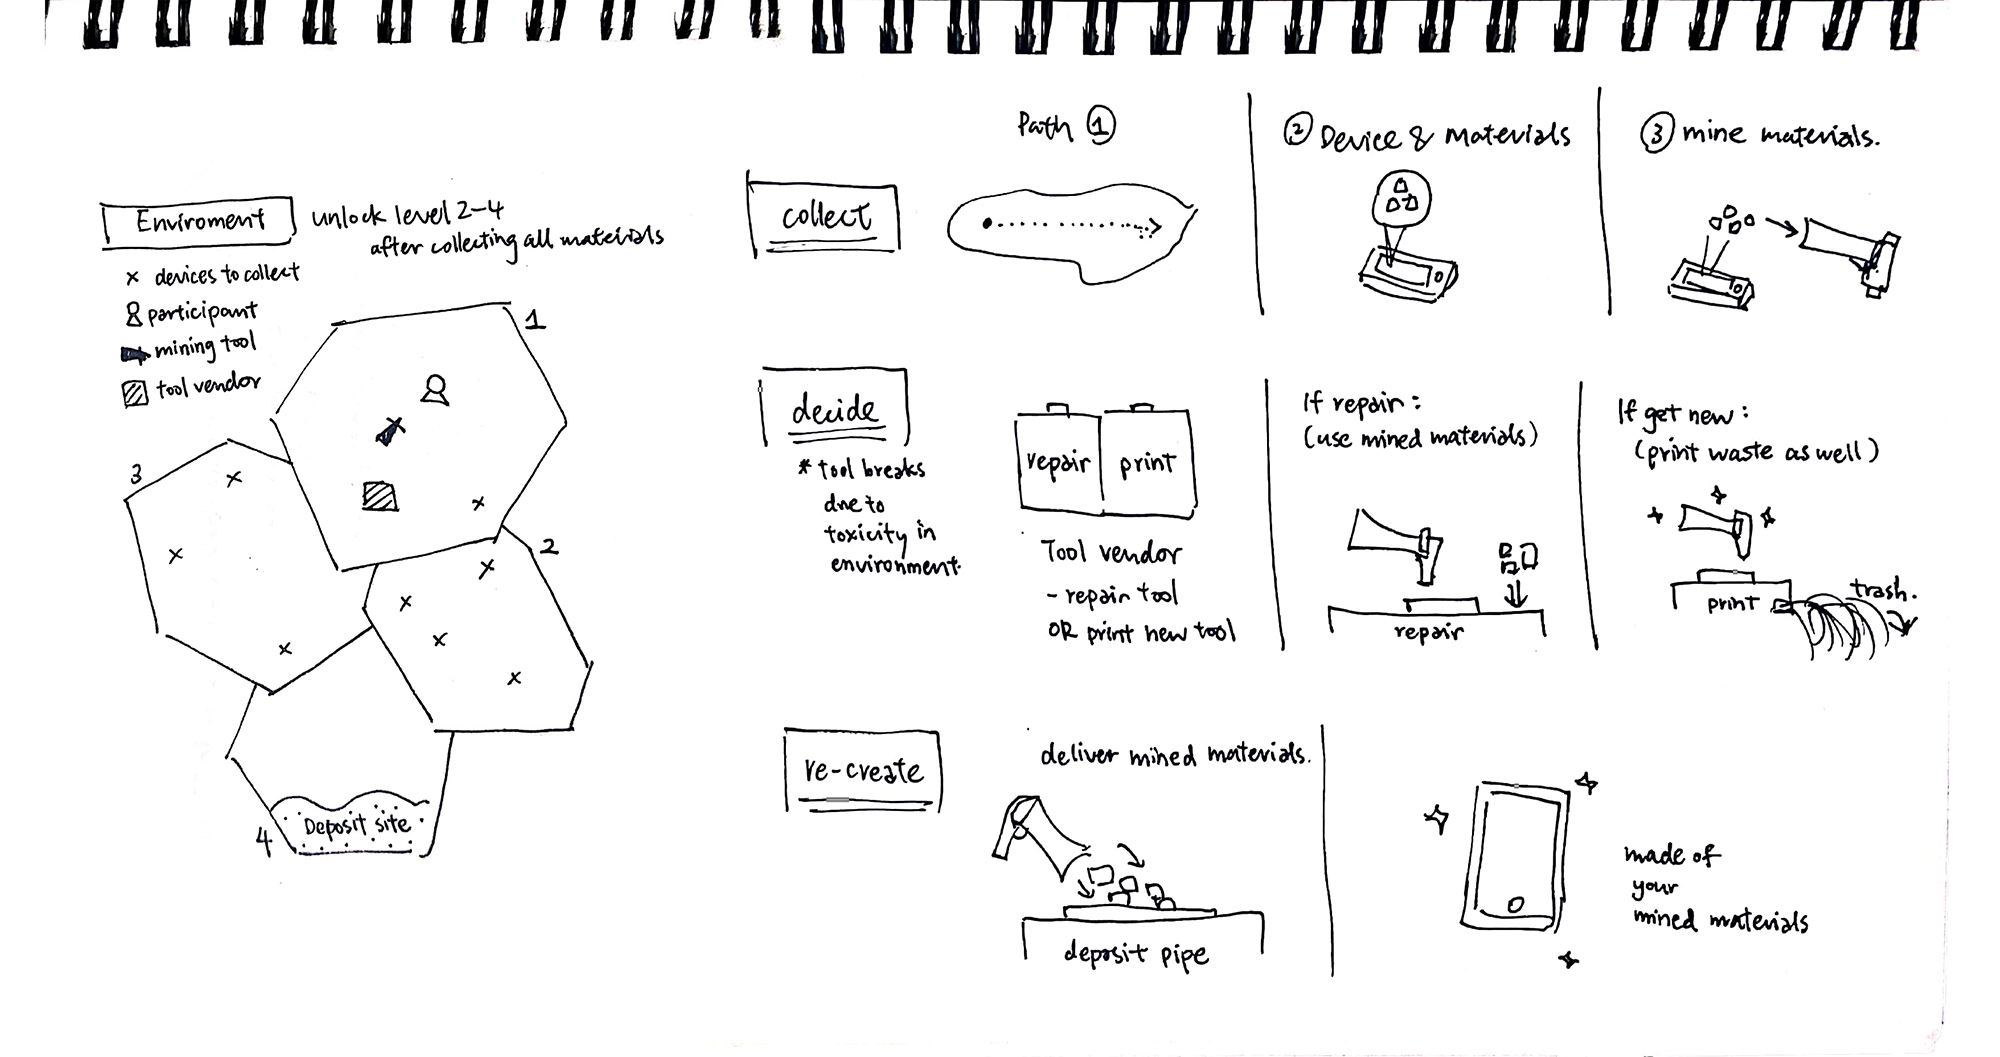 Enviroment
unlock level 2-4
after collecting all materials
x devices to collect
participant
mining tool
tool vendor
1
3
2
4
Deposit site
Path ①
② Device & Materials
③ mine materials.
collect
decide
* tool breaks
due to
toxicity in
environment.
repair
print
Tool vendor
- repair tool
OR print new tool
If repair:
(use mined materials)
repair
If get new:
(print waste as well)
trash.
print
re-create
deliver mined materials.
deposit pipe
made of
your
mined materials